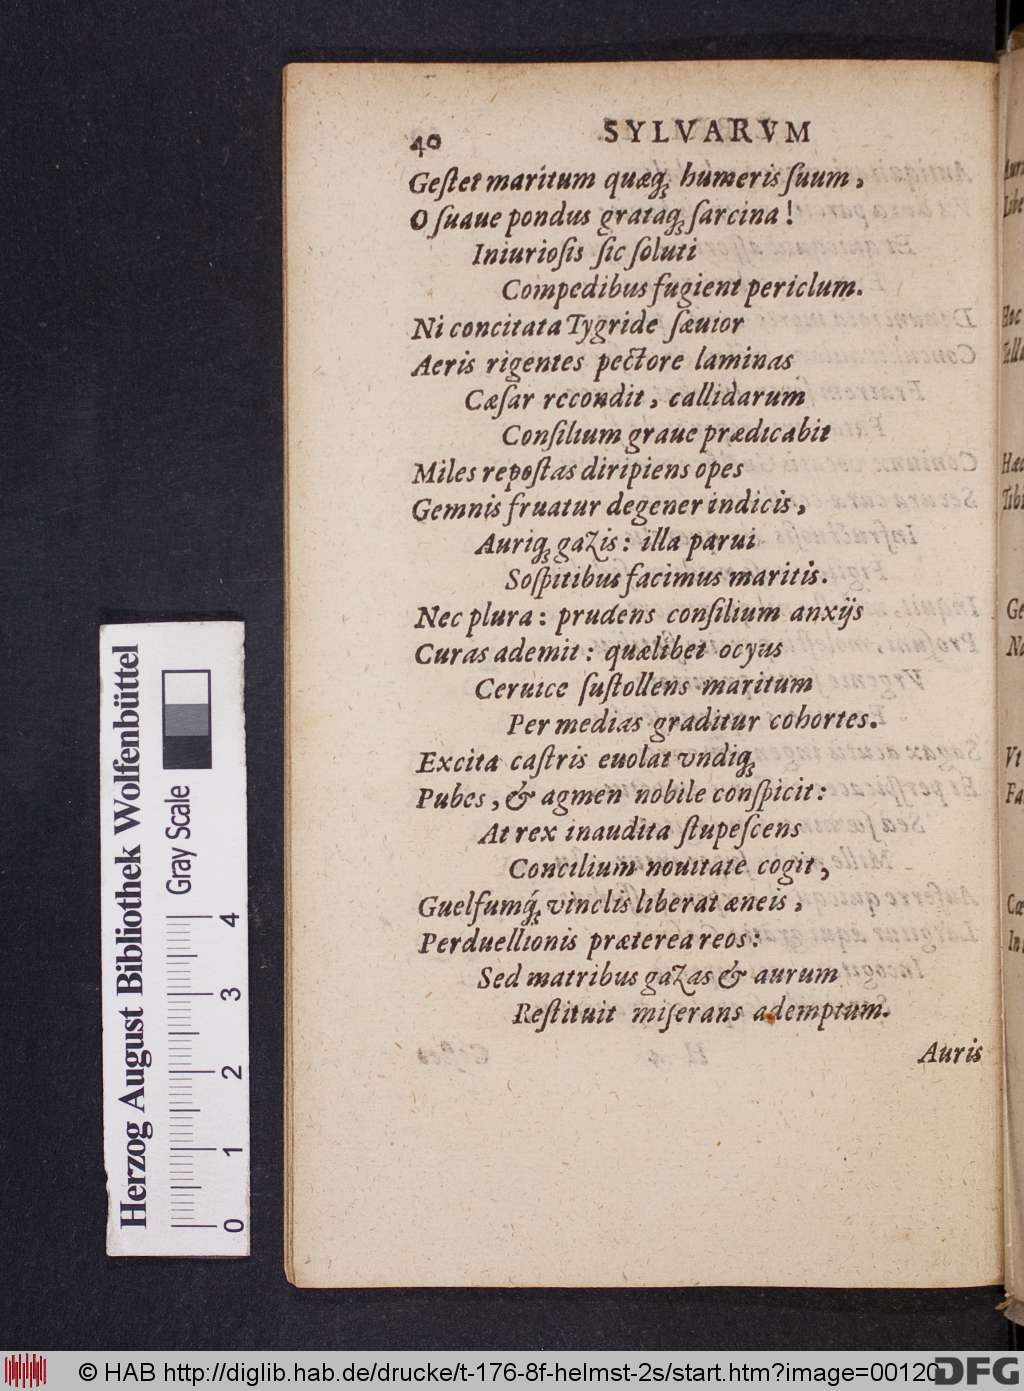 40 SYLVARVM
Geſtet maritum quæq; humeris ſuum,
O ſuaue pondus grataq; ſarcina!
Iniurioſis ſic ſoluti
Compedibus fugient periclum.
Ni concitata Tygride ſæuior
Aeris rigentes pectore laminas
Cæſar recondit, callidarum
Conſilium graue prædicabit
Miles repoſtas diripiens opes
Gemnis fruatur degener indicis,
Auriq; gazis: illa parui
Soſpitibus facimus maritis.
Nec plura: prudens conſilium anxijs
Curas ademit: quælibet ocyus
Ceruice ſuſtollens maritum
Per medias graditur cohortes.
Excita caſtris euolat vndiq;
Pubes, & agmen nobile conſpicit:
At rex inaudita ſtupeſcens
Concilium nouitate cogit,
Guelfumq́; vinclis liberat æneis,
Perduellionis præterea reos:
Sed matribus gazas & aurum
Reſtituit miſerans ademptum.
Auris
Herzog August Bibliothek Wolfenbüttel
Gray Scale
0 1 2 3 4
© HAB http://diglib.hab.de/drucke/t-176-8f-helmst-2s/start.htm?image=00120
DFG